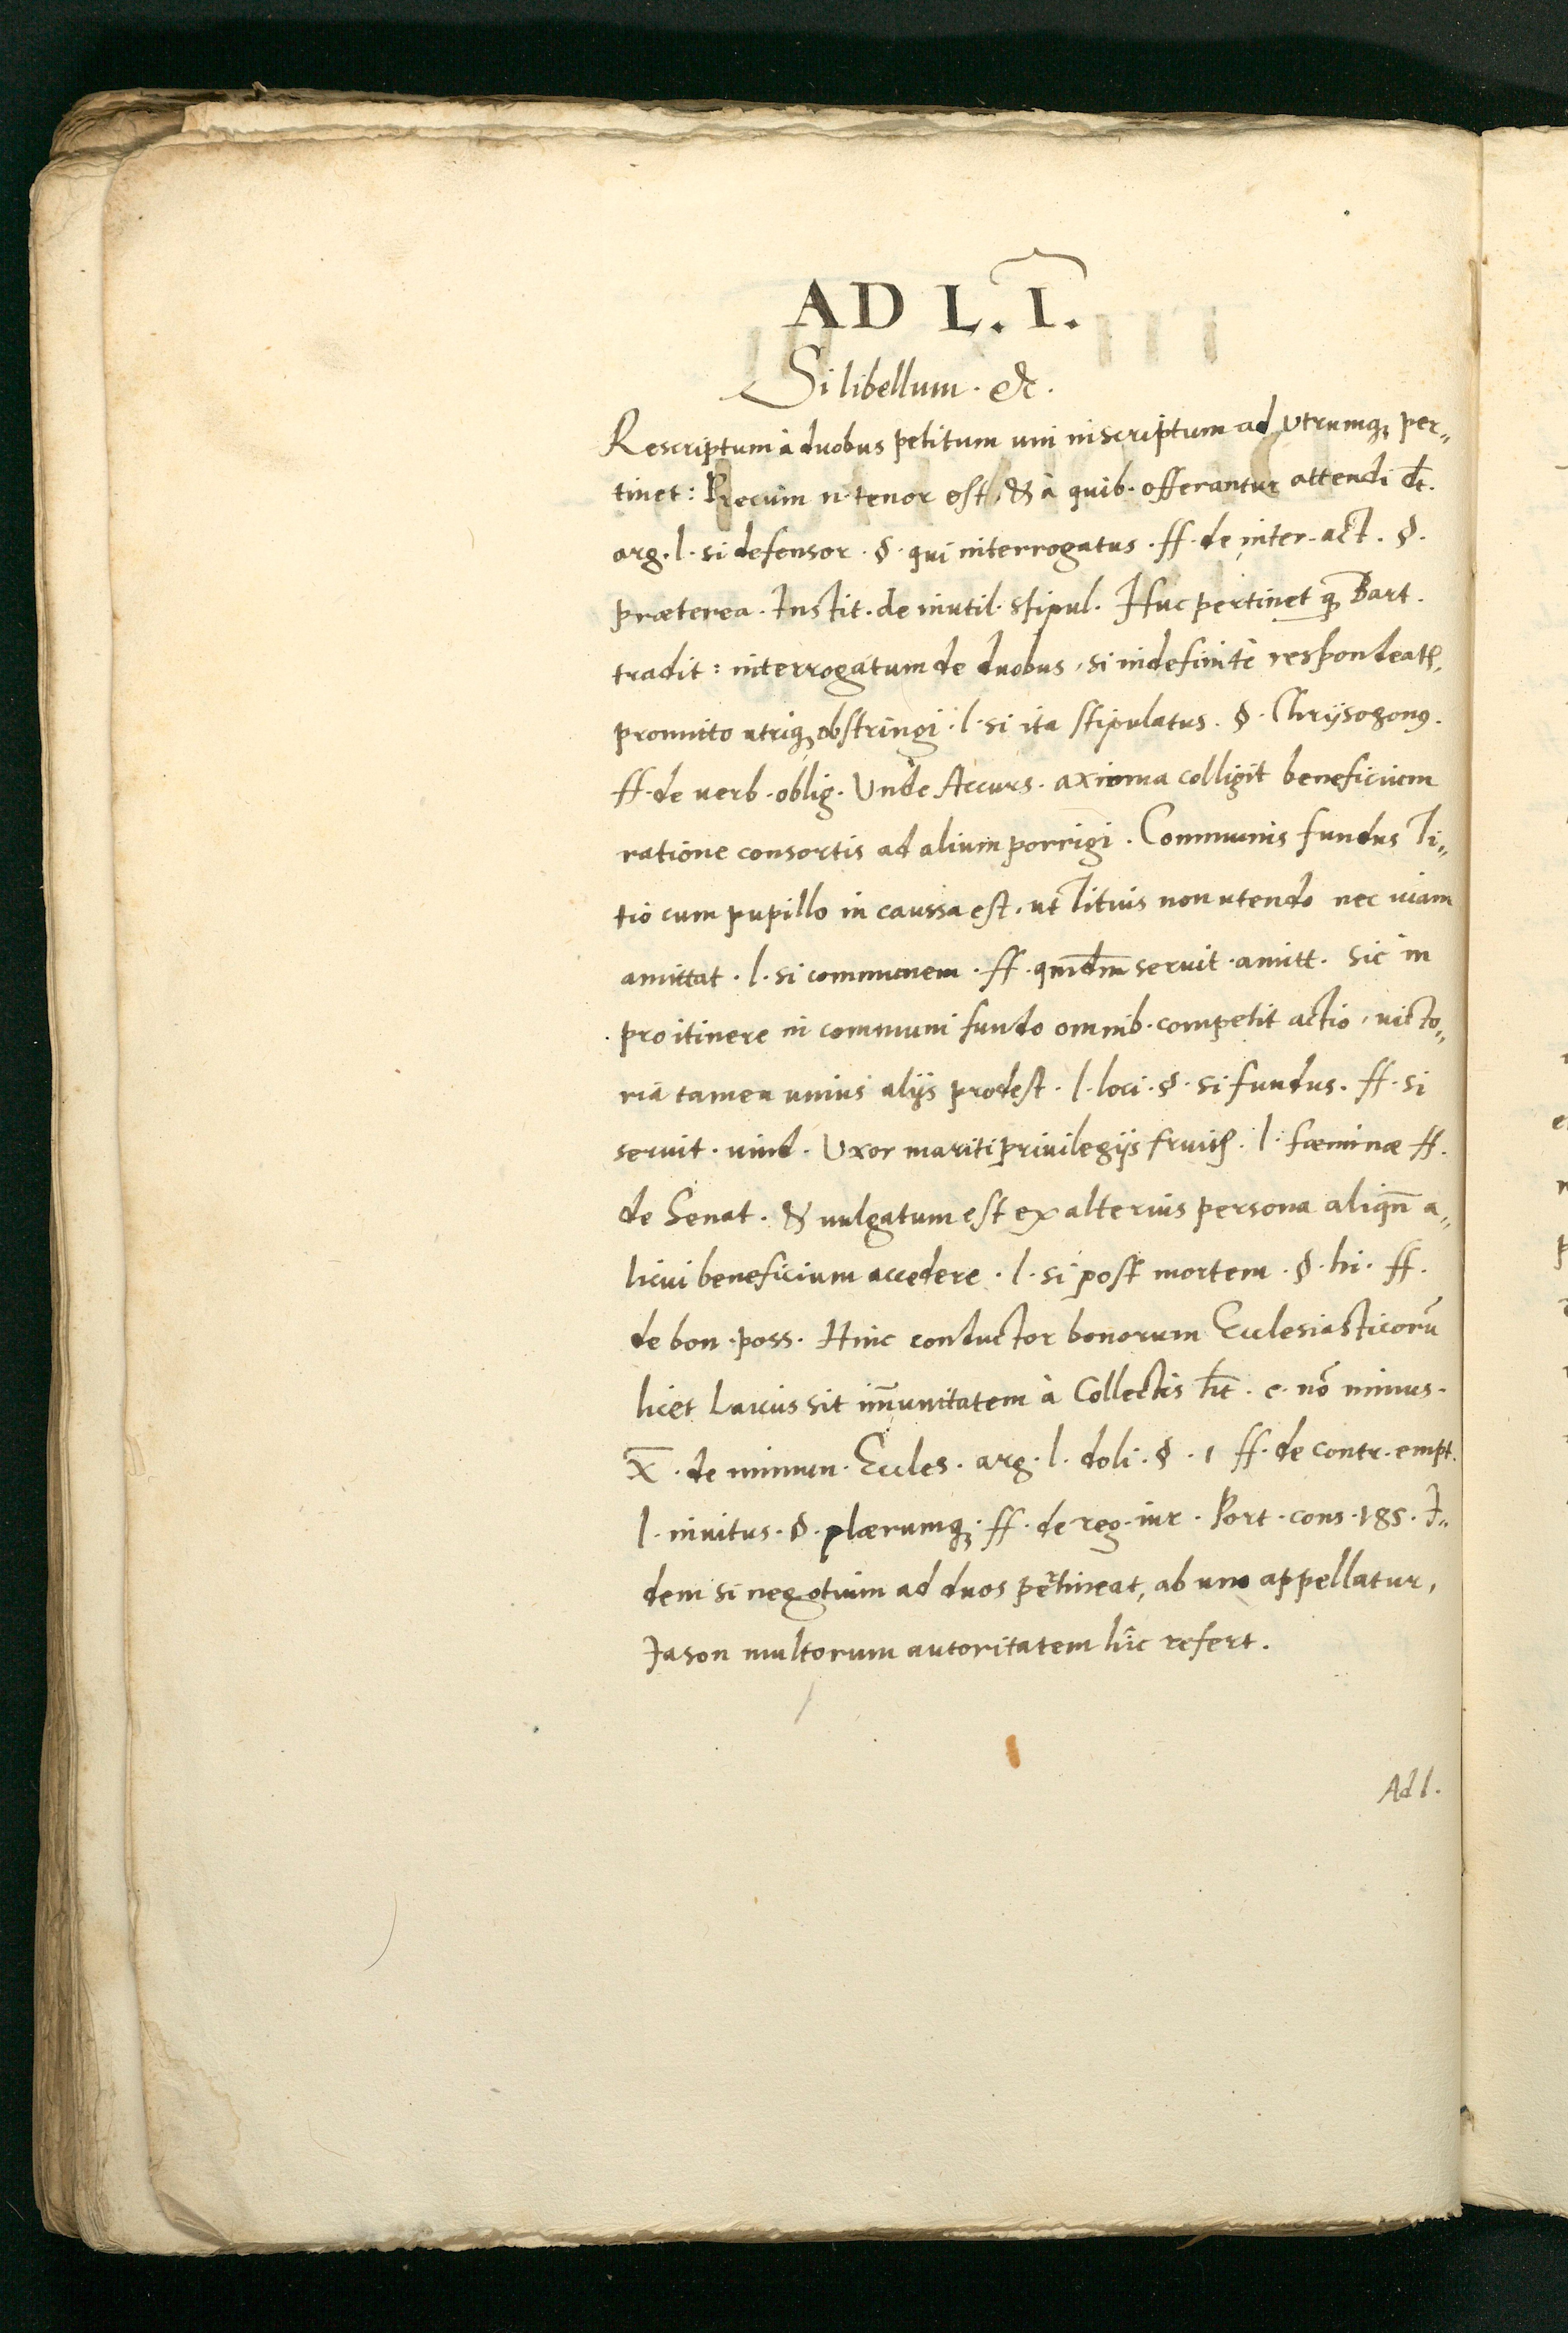 AD L. I.
Si libellum. &c.
Rescriptum à duobus petitum uni inscriptum ad utrumq; per„
tinet: Precum n. tenor est, & à quib. offerantur attendi dt.
arg. l. si defensor. §. qui interrogatus. ff. de inter. act. §.
præterea. Instit. de inutil. stipul. Huc pertinet qđ Bart.
tradit: interrogatum de duobus, si indefinitè respondeatr,
promitto utriq; obstringi. l. si ita stipulatus. §. Chrijsogong.
ff. de uerb. oblig. Unde Accurs. axioma colligit beneficium
ratione consortis ad alium porrigi. Communis fundus Ti„
tio cum pupillo in caussa est, ut Titius non utendo nec uiam
amittat. l. si communem. ff. qmdm seruit. amitt. Sic in
pro itinere in communi fundo omnib. competit actio, uicto„
ria tamen unius alijs prodest. l. loci. §. si fundus. ff. si
seruit. uind. Uxor mariti priuilegijs fruitr. l. fœminæ ff.
de Senat. & uulgatum est ex alterius persona aliqñ a„
licui beneficium accedere. l. si post mortem. §. hi. ff.
de bon. poss. Hinc conductor bonorum Ecclesiasticorũ
licet Laicus sit im̃unitatem à Collectis ht. c. nõ minus.
X̄. de immun. Eccles. arg. l. doli. §. 1 ff. de contr. empt.
l. inuitus. §. plærumq; ff. de reg. iur. Port. cons. 185. I„
dem si negotium ad duos pertineat, ab uno appellatur,
Iason multorum autoritatem hîc refert.
Ad l.